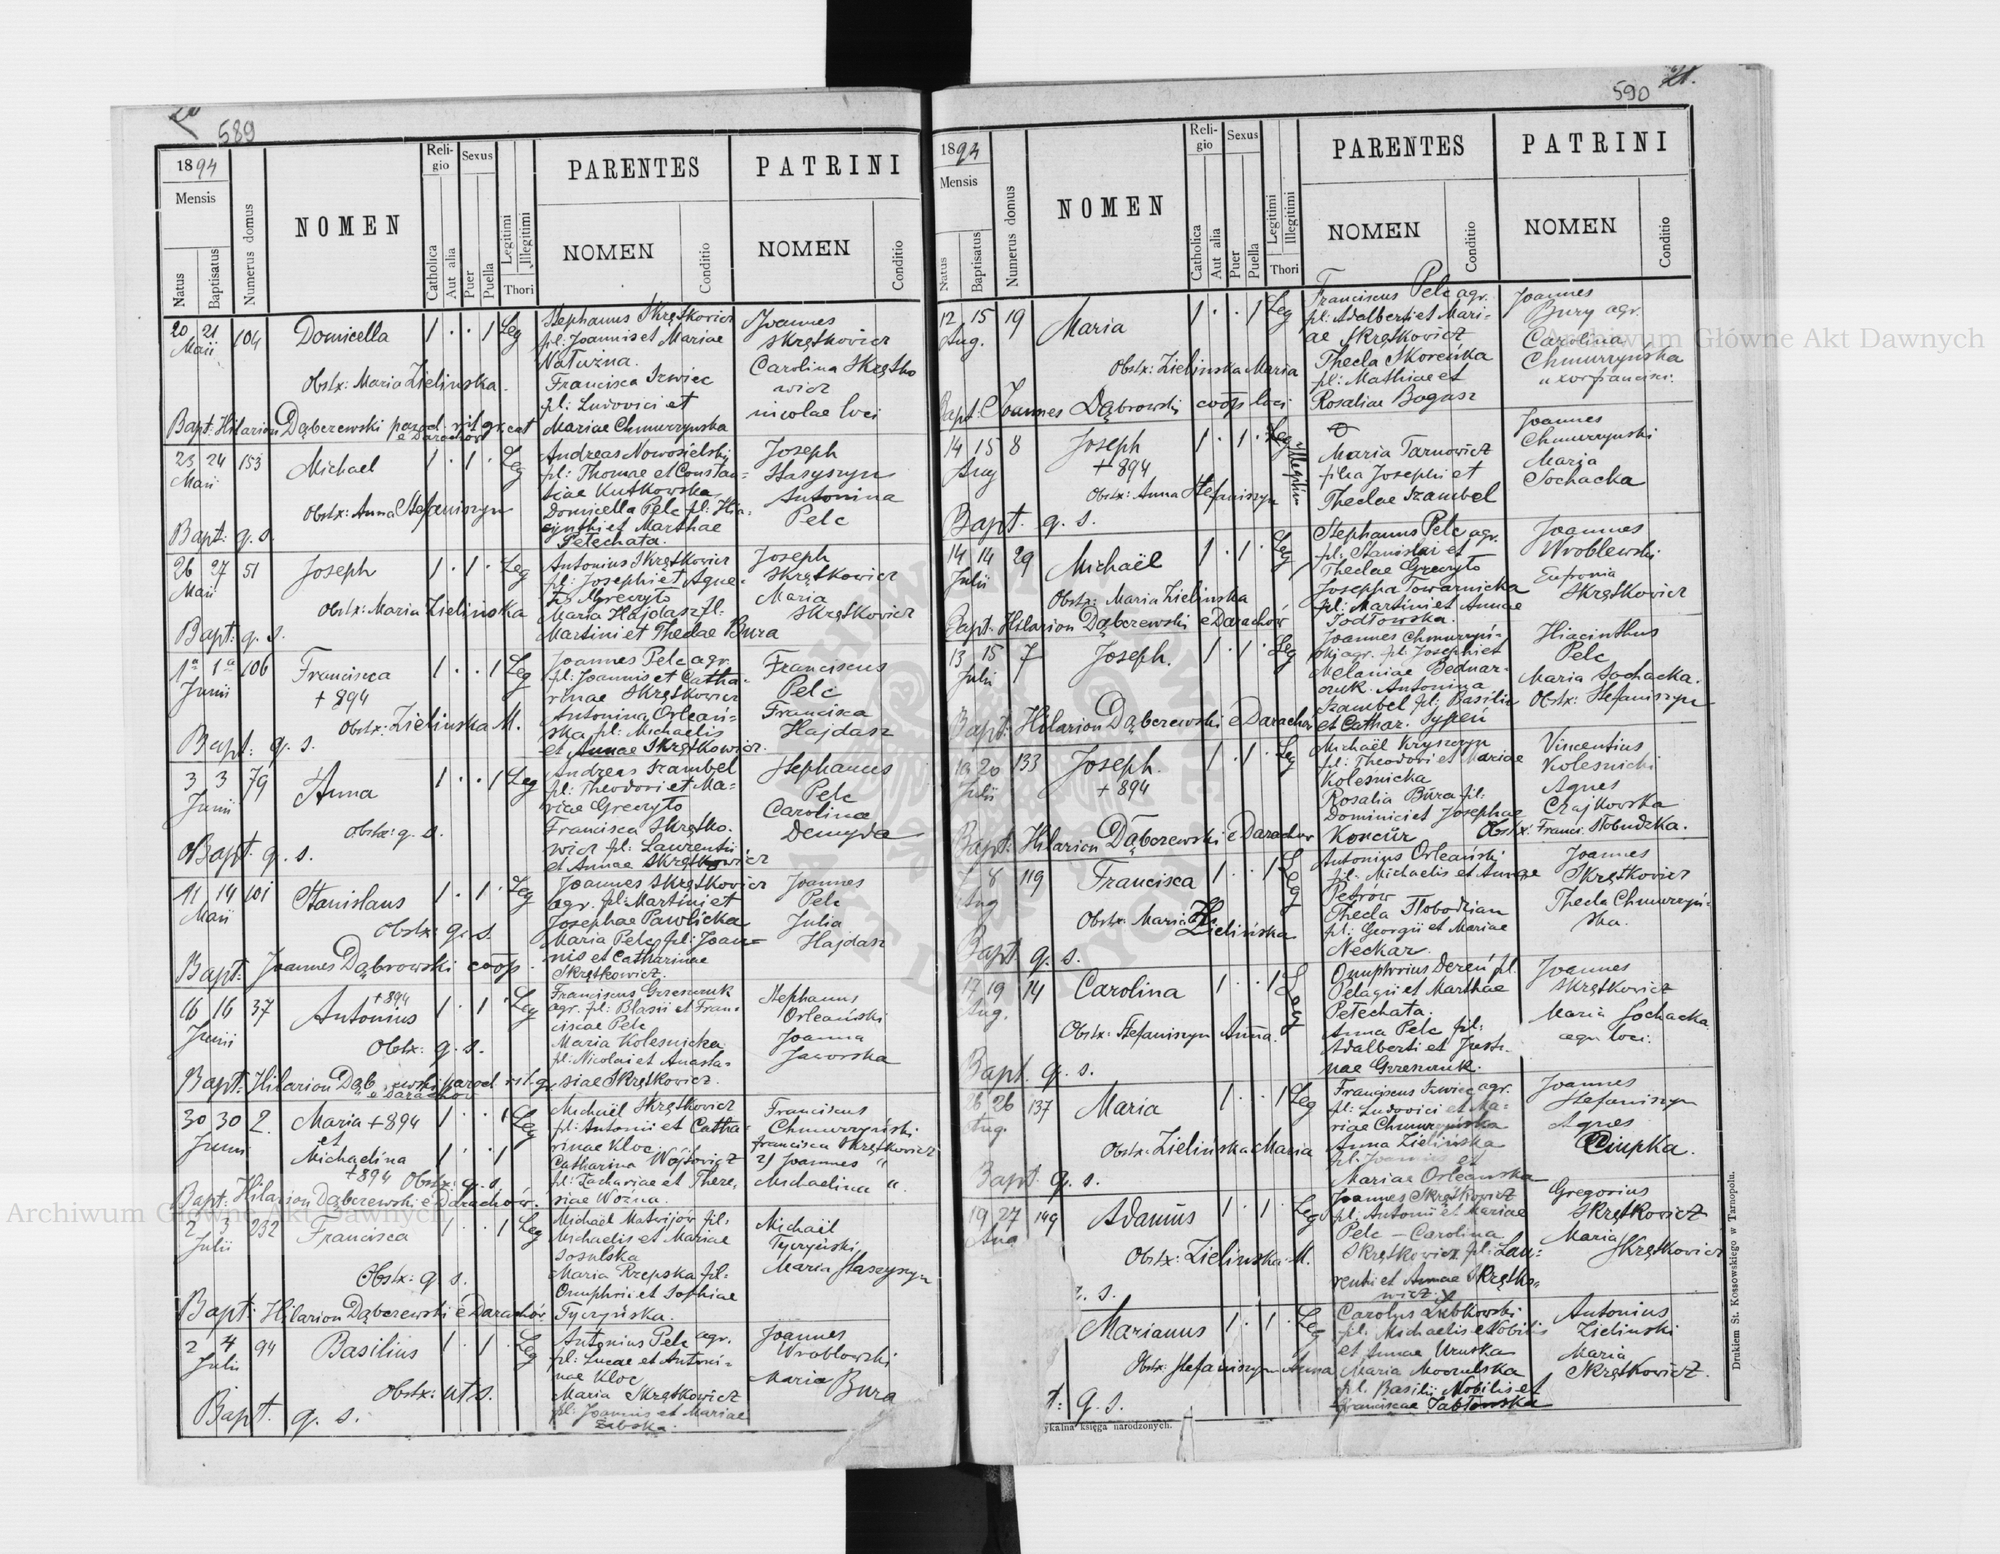 589
1894
Mensis
Natus
Baptisatus
Numerus domus
NOMEN
Reli-
gio
Catholica
Aut alia
Sexus
Puer
Puella
Legitimi
Jllegitimi
Thori
PARENTES
NOMEN
Conditio
PATRINI
NOMEN
Conditio
20 21 104
Maii
Domicella
1 . . 1 Leg
Obstx: Maria Zielinska.
Bapt: Hilarion Dąbczewski paroch. rit. gr. cat
e Darachów
Stephanus Skrętkowicz
fil: Joannis et Mariae
Natużna.
Francisca Szwiec
fil: Ludovici et
Mariae Chmurzynska
Joannes
Skrętkowicz
Carolina Skrętko
wicz
incolae loci
23 24 153
Maii
Michael
1 . 1 . Leg
Obstx: Anna Stefaniszyn
Bapt: q. s.
Andreas Nowosielski
fil: Thomae et Constan-
tiae Kutkowska
Domicella Pelc fil: Hia-
cynthi et Marthae
Petechata.
Joseph
Stasyszyn
Antonina
Pelc
26 27 51
Maii
Joseph
1 . 1 . Leg
Obstx: Maria Zielińska
Bapt: q. s.
Antonius Skrętkowicz
fil: Josephi et Agne-
tis Greczyło
Maria Hajdasz fil.
Martini et Theclae Bura
Joseph
Skrętkowicz
Maria
Skrętkowicz
1a 1a 106
Junii
Francisca
+ 894
1 . . 1 Leg
Obstx: Zielinska M.
Bapt: q. s.
Joannes Pelc agr.
fil: Joannis et Catha-
rinae Skrętkowicz
Antonina Orleań-
ska fil: Michaelis
et Annae Skrętkowicz.
Franciscus
Pelc
Francisca
Hajdasz
3 3 79
Junii
Anna
1 . . 1 Leg
Obstx: q. s.
Bapt. q. s.
Andreas Szambel
fil: Theodori et Ma-
riae Greczyło
Francisca Skrętko-
wicz fil: Laurentii
et Annae Skrętkowicz
Stephanus
Pelc
Carolina
Demyda
11 14 101
Maii
Stanislaus
1 . 1 . Leg
Obstx: q. s.
Bapt: Joannes Dąbrowski coop.
Joannes Skrętkowicz
agr. fil: Martini et
Josephae Pawlicka
Maria Pelc fil: Joan-
nis et Catharinae
Skrętkowicz.
Joannes
Pelc
Julia
Hajdasz
16 16 37
Junii
+ 894
Antonius
1 . 1 . Leg
Obstx: q. s.
Bapt: Hilarion Dąbczewski paroch. rit. gr.
e Darachów
Franciscus Grzeszczuk
agr. fil: Blasii et Fran-
ciscae Pelc
Maria Kolesnicka
fil: Nicolai et Anasta-
siae Skrętkowicz.
Stephanus
Orleański
Joanna
Jaworska
30 30 2.
Junii
Maria + 894
et
Michaelina
+ 894
1 . . 1 Leg
1 . . 1
Obstx: q. s.
Bapt: Hilarion Dąbczewski e Darachów.
Michaël Skrętkowicz
fil: Antonii et Catha-
rinae Kloc
Catharina Wójtowicz
fil: Zachariae et There-
siae Woźna.
Franciscus
Chmurzyński
Francisca Skrętkowicz
2) Joannes "
Michaelina "
2 3 232
Julii
Francisca
1 . . 1 Leg
Obstx: q. s.
Bapt: Hilarion Dąbczewski e Darachów.
Michaël Matwijów fil:
Michaelis et Mariae
Sosulska
Maria Rzepska fil:
Onuphrii et Sophiae
Tyczyńska.
Michaël
Tyczyński
Maria Staszyszyn
2 4 94
Julii
Basilius
1 . 1 . Leg
Obstx: uts.
Bapt. q. s.
Antonius Pelc agr.
fil: Lucae et Antoni-
nae Kloc
Maria Skrętkowicz
fil: Joannis et Mariae
Zabska.
Joannes
Wroblowski
Maria Bura
590 21.
1894
Mensis
Natus
Baptisatus
Numerus domus
NOMEN
Reli-
gio
Catholica
Aut alia
Sexus
Puer
Puella
Legitimi
Jllegitimi
Thori
PARENTES
NOMEN
Conditio
PATRINI
NOMEN
Conditio
12 15 19
Aug.
Maria
1 . . 1 Leg
Obstx: Zielinska Maria
Bapt: Joannes Dąbrowski coop loci
Franciscus Pelc agr.
fil: Adalberti et Mari-
ae Skrętkowicz
Thecla Skorenka
fil: Mathiae et
Rosaliae Bogusz
Joannes
Bury agr.
Carolina
Chmurzyńska
uxor Francisci.
14 15 8
Aug
Joseph
+ 894
1 . 1 . Illegitim
Obstx: Anna Stefaniszyn
Bapt. q. s.
Maria Tarnowicz
filia Josephi et
Theclae Szambel
Joannes
Chmurzynski
Maria
Sochacka
14 14 29
Julii
Michaël
1 . 1 . Leg
Obstx: Maria Zielinska
Bapt: Hilarion Dąbczewski e Darachów
Stephanus Pelc agr.
fil: Stanislai et
Theclae Greczyło
Josepha Towarnicka
fil: Martini et Annae
Podłowska.
Joannes
Wroblewski
Eufronia
Skrętkowicz
13 15 7
Julii
Joseph.
1 . 1 . Leg
Bapt: Hilarion Dąbczewski e Darachów
Joannes Chmurzyń-
ski agr. fil: Josephi et
Melaniae Bednar-
czuk. Antonina
Szambel fil: Basilii
et Cathar. Sypeń
Hiacinthus
Pelc
Maria Sochacka.
Obstx: Stefaniszyn
19 20 133
Julii
Joseph.
+ 894
1 . 1 . Leg
Bapt: Hilarion Dąbczewski e Darachów
Michaël Kryszczyn
fil: Theodori et Mariae
Kolesnicka
Rosalia Bura fil:
Dominici et Josephae
Koncür
Vincentius
Kolesnicki
Agnes
Czajkowska
Obstx: Franci. Słobudzka.
8 119
Aug
Francisca
1 . . 1 Leg
Obstx: Maria
Zielińska
Bapt q. s.
Antonius Orleański
fil: Michaelis et Annae
Petrów
Thecla Słobodzian
fil: Georgii et Mariae
Neckar.
Joannes
Skrętkovicz
Thecla Chmurzyń-
ska.
17 19 14
Aug.
Carolina
1 . . 1 Leg
Obstx: Stefaniszyn Anna.
Bapt. q. s.
Onuphrius Dereń fil.
Pelagii et Marthae
Petechata.
Anna Pelc fil:
Adalberti et Justi-
nae Grzeszczuk.
Joannes
Skrętkowicz
Maria Sochacka
agr. loci.
26 26 137
Aug.
Maria
1 . . 1 Leg
Obstx: Zielińska Maria
Bapt q. s.
Franciscus Szwiec agr.
fil: Ludovici et Ma-
riae Chmurzyńska
Anna Zielińska
fil: Joannis et
Mariae Orleanska
Joannes
Stefaniszyn
Agnes
Ciupka.
19 27 149
Aug
Adamus
1 . 1 . Leg
Obstx: Zielinska M.
q. s.
Joannes Skrętkowicz
fil: Antonii et Mariae
Pelc - Carolina
Skrętkowicz fil: Lau-
rentii et Annae Skrętko-
wicz.
Gregorius
Skrętkowicz
Maria
Skrętkowicz
Marianus
1 . 1 . Leg
Obstx: Stefaniszyn Anna
t: q. s.
Carolus Zubkowski
fil. Michaelis Nobilis
et Annae Uruska
Maria Mooзulska
fil. Basilii Nobilis et
Franciscae Jabłonska
Antonius
Zielinski
Maria
Skrętkowicz.
ykalna księga narodzonych.
Drukiem St. Kossowskiego w Tarnopolu.
Archiwum Główne Akt Dawnych
Archiwum Główne Akt Dawnych